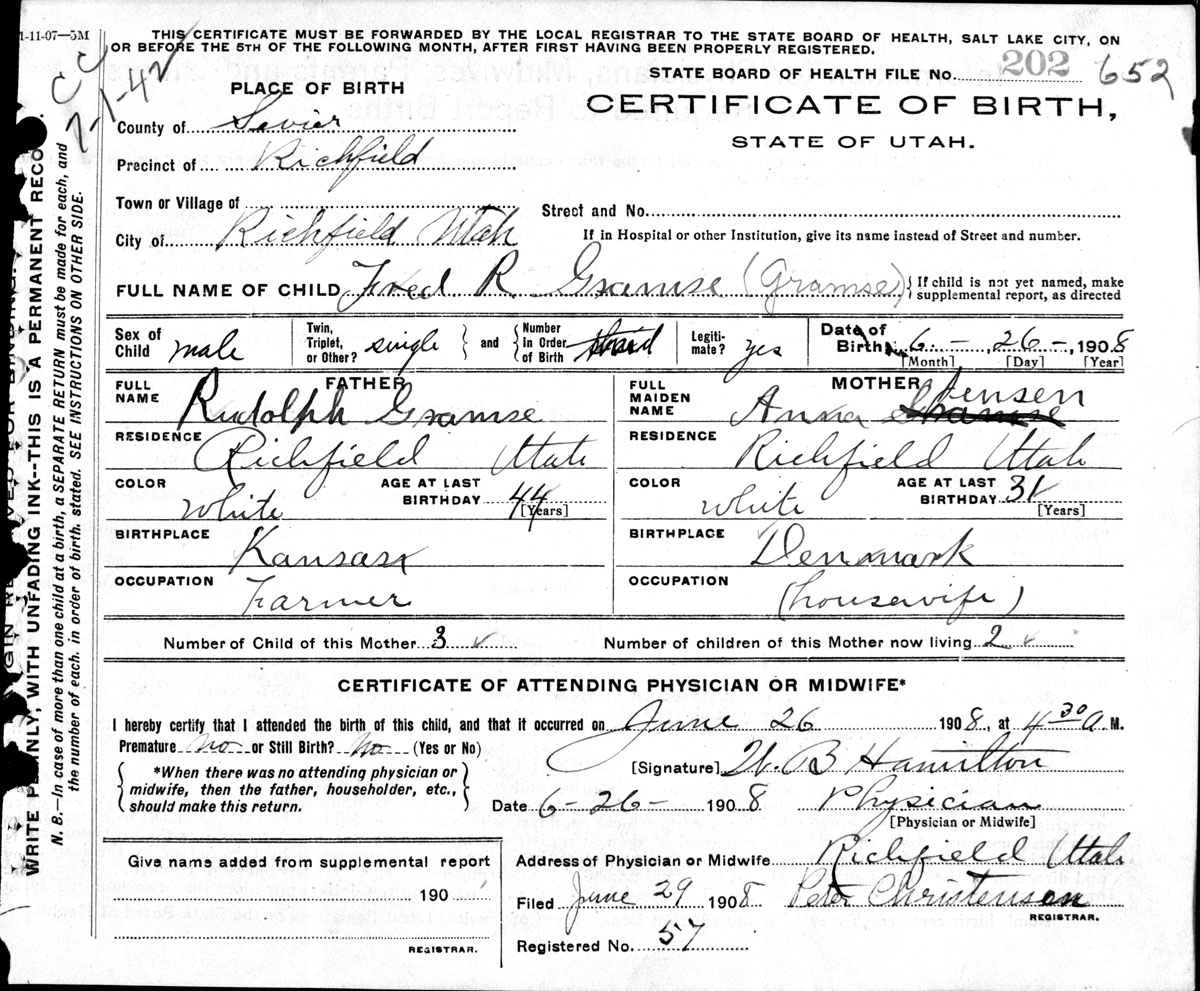 1-11-07—5M
THIS CERTIFICATE MUST BE FORWARDED BY THE LOCAL REGISTRAR TO THE STATE BOARD OF HEALTH, SALT LAKE CITY, ON
OR BEFORE THE 5TH OF THE FOLLOWING MONTH, AFTER FIRST HAVING BEEN PROPERLY REGISTERED.
STATE BOARD OF HEALTH FILE No. 202 652
7-1-42
PLACE OF BIRTH
CERTIFICATE OF BIRTH,
STATE OF UTAH.
County of Sevier
Precinct of Richfield
Town or Village of
Street and No.
City of Richfield Utah
If in Hospital or other Institution, give its name instead of Street and number.
FULL NAME OF CHILD Fred R Gramse (Gramse) { If child is not yet named, make
supplemental report, as directed
Sex of Child male
Twin, Triplet, or Other? single and { Number In Order of Birth
Legiti- mate? yes
Date of Birth 6 - , 26 - , 1908
[Month] [Day] [Year]
FATHER
FULL NAME Rudolph Gramse
RESIDENCE Richfield Utah
COLOR White
AGE AT LAST BIRTHDAY 44 [Years]
BIRTHPLACE Kansas
OCCUPATION Farmer
MOTHER
FULL MAIDEN NAME Anna Jensen
RESIDENCE Richfield Utah
COLOR White
AGE AT LAST BIRTHDAY 31 [Years]
BIRTHPLACE Denmark
OCCUPATION (housewife)
Number of Child of this Mother 3
Number of children of this Mother now living 2
CERTIFICATE OF ATTENDING PHYSICIAN OR MIDWIFE*
I hereby certify that I attended the birth of this child, and that it occurred on June 26 1908, at 4 30 A. M.
Premature No or Still Birth? No (Yes or No)
*When there was no attending physician or
midwife, then the father, householder, etc.,
should make this return.
[Signature] H. B Hamilton
Date 6-26- 1908 Physician
[Physician or Midwife]
Give name added from supplemental report
190
REGISTRAR.
Address of Physician or Midwife Richfield Utah
Filed June 29 1908 Peter Christensen
REGISTRAR.
Registered No. 57
WRITE PLAINLY, WITH UNFADING INK--THIS IS A PERMANENT RECO
N. B.—In case of more than one child at a birth, a SEPARATE RETURN must be made for each, and
the number of each, in order of birth, stated. SEE INSTRUCTIONS ON OTHER SIDE.